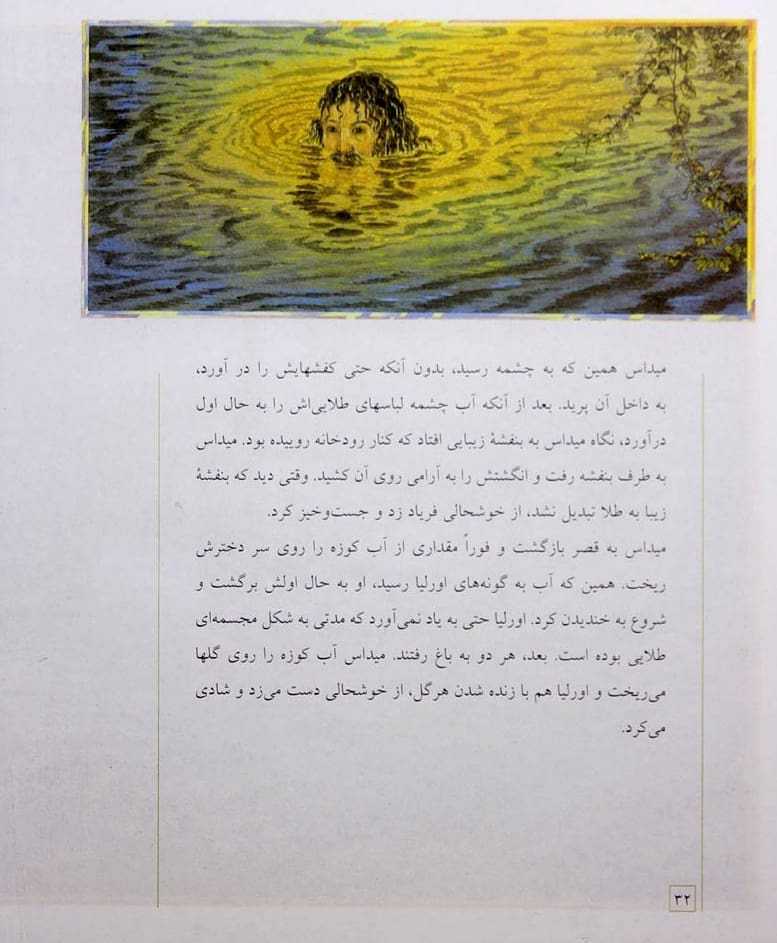 میداس همین که به چشمه رسید، بدون آنکه حتی کفشهایش را در آورد،
به داخل آن پرید. بعد از آنکه آب چشمه لباسهای طلایی‌اش را به حال اول
درآورد، نگاه میداس به بنفشهٔ زیبایی افتاد که کنار رودخانه روییده بود. میداس
به طرف بنفشه رفت و انگشتش را به آرامی روی آن کشید. وقتی دید که بنفشهٔ
زیبا به طلا تبدیل نشد، از خوشحالی فریاد زد و جست‌وخیز کرد.
میداس به قصر بازگشت و فوراً مقداری از آب کوزه را روی سر دخترش
ریخت. همین که آب به گونه‌های اورلیا رسید، او به حال اولش برگشت و
شروع به خندیدن کرد. اورلیا حتی به یاد نمی‌آورد که مدتی به شکل مجسمه‌ای
طلایی بوده است. بعد، هر دو به باغ رفتند. میداس آب کوزه را روی گلها
می‌ریخت و اورلیا هم با زنده شدن هرگل، از خوشحالی دست می‌زد و شادی
می‌کرد.
۳۲